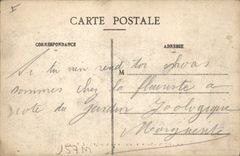 CARTE POSTALE
CORRESPONDANCE
ADRESSE
Si tu rend toi nous
M
sommes chez la fleuriste a
coté du Jardin Zoologique
Marguerite